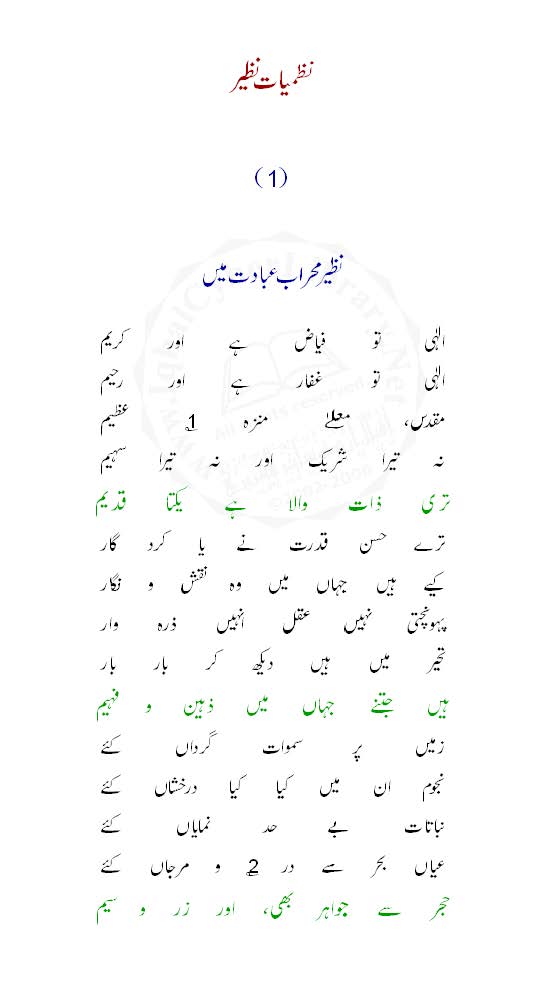 نظمیات نظیر
(1)
نظیر محراب عبادت میں
الٰہی تو فیاض ہے اور کریم
الٰہی تو غفار ہے اور رحیم
مقدس، معلےٰ منزہ 1؂ عظیم
نہ تیرا شریک اور نہ تیرا سہیم
تری ذات والا ہے یکتا قدیم
ترے حسن قدرت نے یا کرد گار
کیے ہیں جہاں میں وہ نقش و نگار
پہونچتی نہیں عقل انہیں ذرہ وار
تحیر میں ہیں دیکھ کر بار بار
ہیں جتنے جہاں میں ذہین و فہیم
زمیں پر سموات گرداں کئے
نجوم ان میں کیا کیا درخشاں کئے
نباتات بے حد نمایاں کئے
عیاں بحر سے در 2؂ و مرجاں کئے
حجر سے جواہر بھی، اور زر و سیم